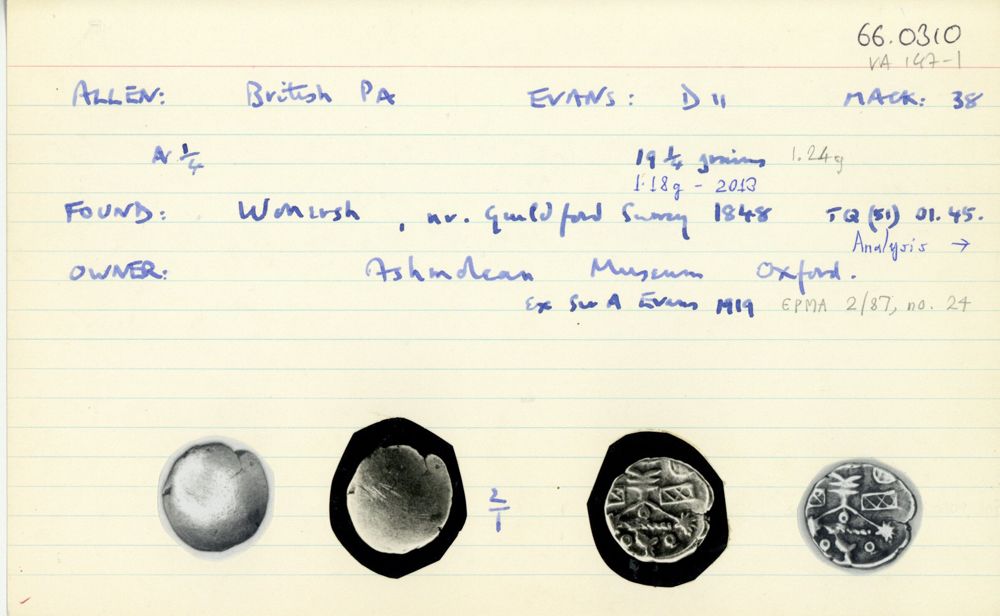 66.0310
VA 147-1
ALLEN: British PA EVANS: D 11 MACK: 38
AV 1/4 19 1/4 grains 1.24g
1.18g - 2013
FOUND: Wonersh, nr. Guildford Surrey 1848 TQ (51) 01.45.
Analysis →
OWNER: Ashmolean Museum Oxford.
Ex Sir A Evans 1919 EPMA 2/87, no. 24
2/1